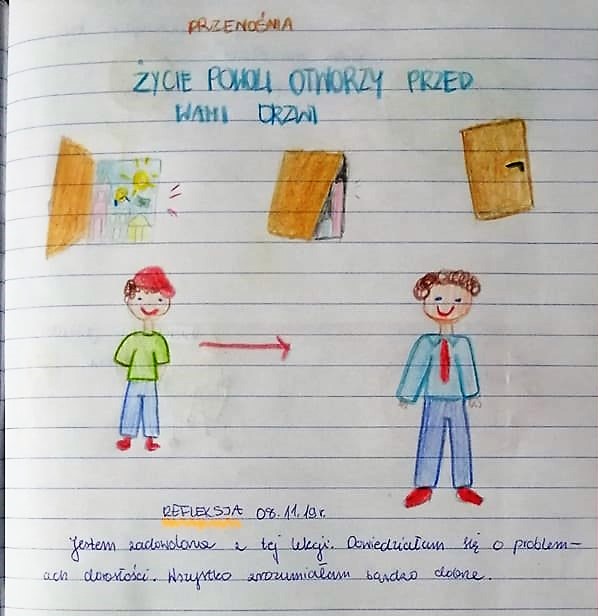 PRZENOŚNIA
ŻYCIE POWOLI OTWORZY PRZED
WAMI DRZWI
REFLEKSJA 08.11.19r.
Jestem zadowolona z tej lekcji. Dowiedziałam się o problem-
ach dorosłości. Wszystko zrozumiałam bardzo dobrze.